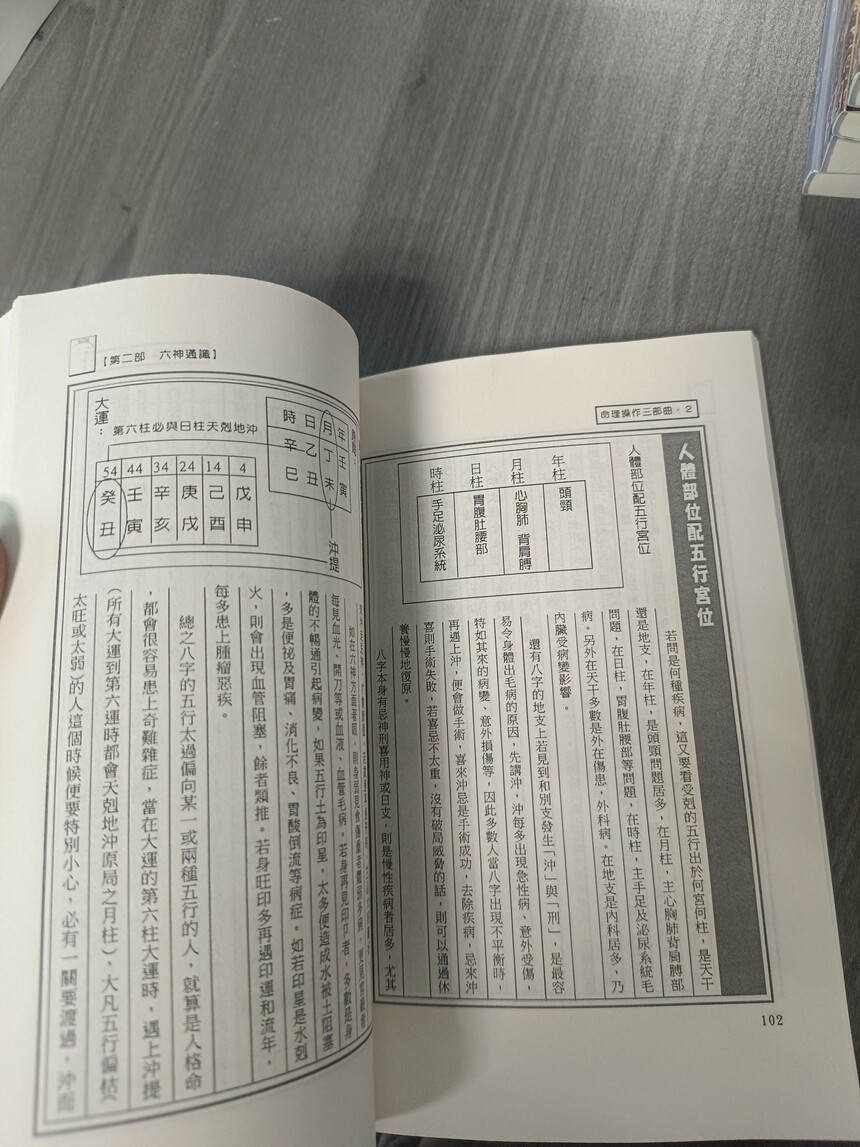 命理操作三部曲·2
人體部位配五行宮位
人體部位配五行宮位
年柱 頭頸
月柱 心胸肺 背肩膊
日柱 胃腹肚腰部
時柱 手足泌尿系統
若問是何種疾病，這又要看受剋的五行出於何宮何柱，是天干
還是地支，在年柱，是頭頸問題居多，在月柱，主心胸肺背肩膊部
問題，在日柱，胃腹肚腰部等問題，在時柱，主手足及泌尿系統毛
病。另外在天干多數是外在傷患，外科病。在地支是內科居多，乃
內臟受病變影響。
還有八字的地支上若見到和別支發生「沖」與「刑」，是最容
易令身體出毛病的原因，先講沖，沖每多出現急性病、意外受傷，
特如其來的病變、意外損傷等，因此多數人當八字出現不平衡時，
再遇上沖，便會做手術，喜來沖忌是手術成功，去除疾病，忌來沖
喜則手術失敗，若喜忌不太重，沒有破局威脅的話，則可以通過休
養慢慢地復原。
八字本身有忌神刑喜用神或日支，則是慢性疾病者居多，尤其
102
【第二部 六神通識】
年 壬 寅
月 丁 未
日 乙 丑
時 辛 巳
沖提
大運：
第六柱必與日柱天剋地沖
4 戊 申
14 己 酉
24 庚 戌
34 辛 亥
44 壬 寅
54 癸 丑
每見血光、開刀等或血液、血管毛病。若身再見印
者，多數是身
體的不暢通引起病變，如果五行土為印星，太多便造成水被土阻塞
，多是便祕及胃痛、消化不良、胃酸倒流等病症。如若印星是水剋
火，則會出現血管阻塞，餘者類推。若身旺印多再遇印運和流年，
每多患上腫瘤惡疾。
總之八字的五行太過偏向某一或兩種五行的人，就算是人格命
，都會很容易患上奇難雜症，當在大運的第六柱大運時，遇上沖提
（所有大運到第六運時都會天剋地沖原局之月柱），大凡五行偏枯（
太旺或太弱）的人這個時候便要特別小心，必有一關要渡過，沖而